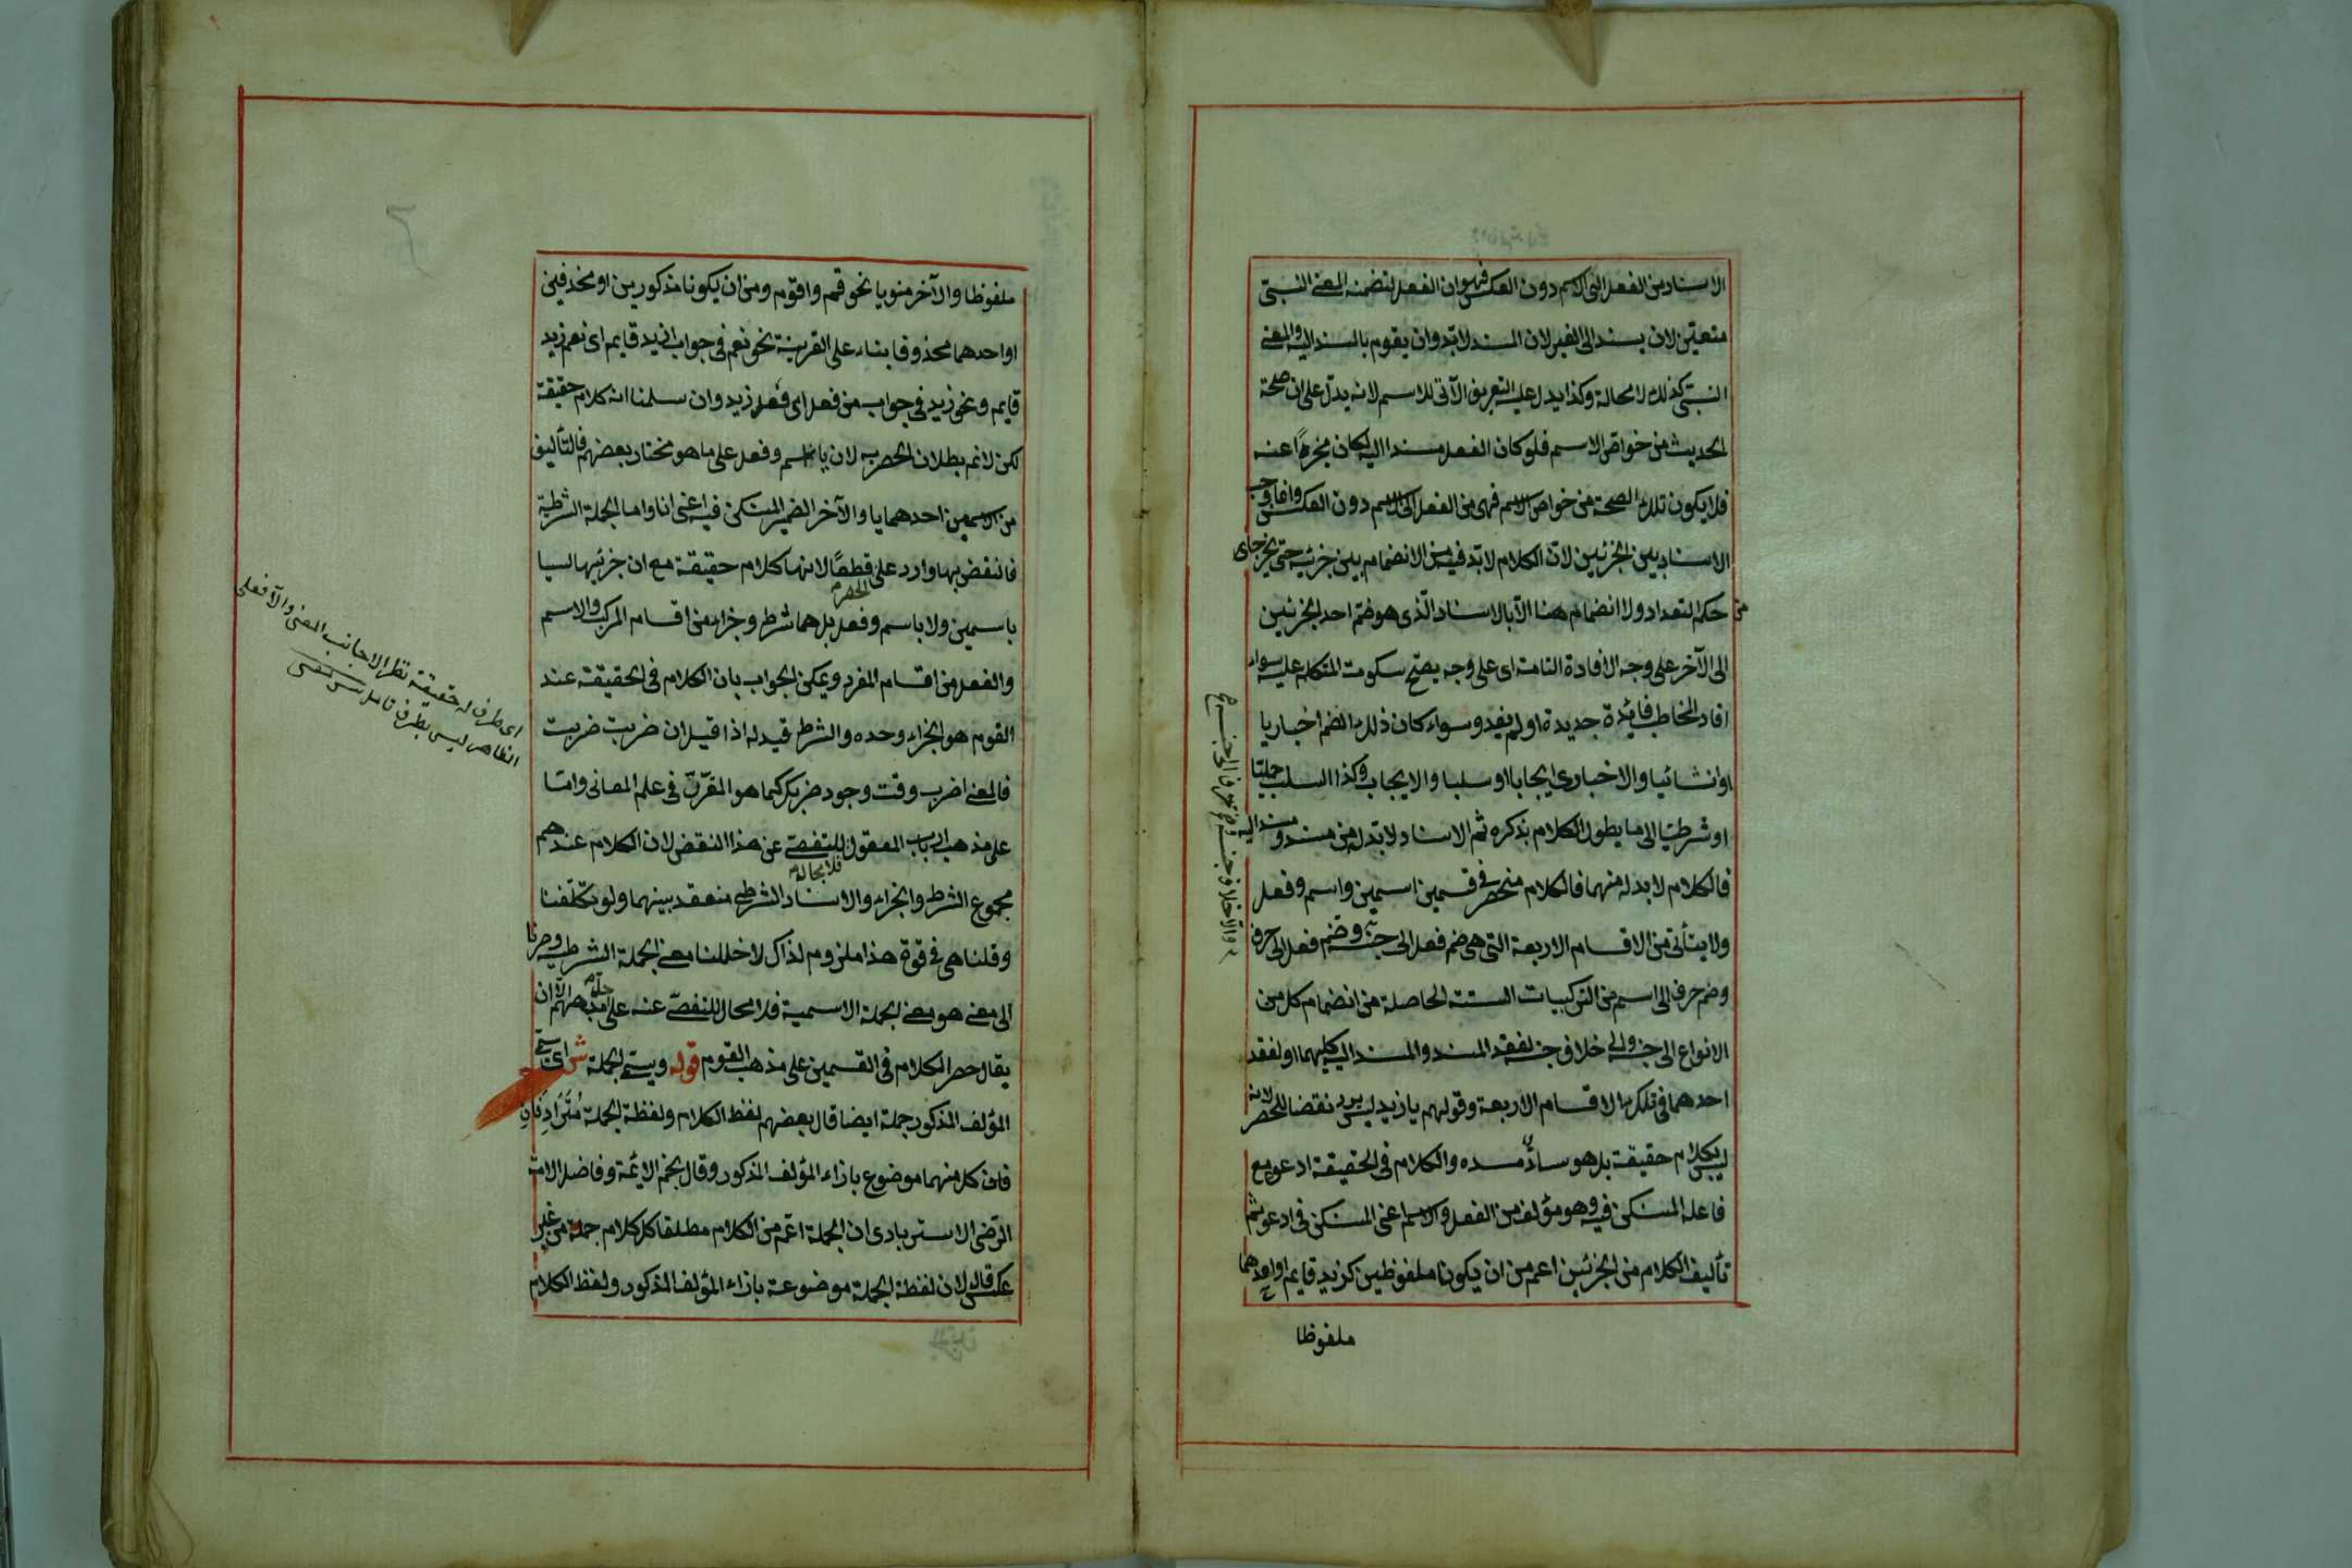 الاسناد من الفعل الى الاسم دون العكس فهو ان الفعل لتضمنه المعنى النسبتى
متعيّن لان يسند الى الغير لان المسند لابدّ وان يقوم بالمسند اليه والمعنى
النسبتى كذلك لا محالة وكذا يدل عليه التعريف الآتى للاسم لانه يدلّ على ان صحّة
الحديث من خواص الاسم فلو كان الفعل مسندا اليه لكان مخبرًا عنه
فلا يكون تلك الصحة من خواص الاسم فهى من الفعل الى الاسم دون العكس وانما وجب
الاسناد بين الجزئين لانّ الكلام لابدّ فيه من الانضمام بين جزئيه حتى يخرجاى
من حكم التعداد ولا انضمام هنا الّا بالاسناد الّذى هو ضمّ احد الجزئين
الى الآخر على وجه الافادة التامة اى على وجه يصحّ سكوت المتكلم عليه سواء
افاد المخاطب فايدة جديدة او لم يفد وسواء كان ذلك الضم اخباريا
او انشائيا والاخبارى ايجابا او سلبا والايجاب وكذا السلب حمليّا
او شرطيّا الى ما يطول الكلام بذكره ثم الاسناد لابدّ له من مسند ومسند اليه
فالكلام لابد له منهما فالكلام منحصر فى قسمين اسمين واسم وفعل
ولا يتأتى من الاقسام الاربعة التى هى ضم فعل الى جنسه وضم فعل الى حرف
وضم حرف الى اسم من التركيبات الستة الحاصلة من انضمام كل من
الانواع الى جنسه والى خلاف جنسه لفقد المسند والمسند اليه كليهما او لفقد
احدهما فى تلك الاقسام الاربعة وقولهم يا زيد ليس يرد نقضا للحصر لانه
ليس بكلام حقيقة بل هو سادّ مسده والكلام فى الحقيقة ادعو مع
فاعله المستكن فيه وهو مؤلف من الفعل والاسم اعنى المستكن فى ادعو ثم
تأليف الكلام من الجزئين اعم من ان يكونا ملفوظين كزيد قايم او احدهما
ملفوظا
ملفوظا والآخر منويا نحو قم واقوم ومن ان يكونا مذكورين او محذوفين
او احدهما محذوفا بناء على القرينة نحو نعم فى جواب ازيد قايم اى نعم زيد
قايم ونحو زيد فى جواب من فعل اى فعل زيد وان سلمنا انه كلام حقيقة
لكن لانم بطلان الحصر به لان يا اسم وفعل على ما هو مختار بعضهم فالتأليف
من الاسمين احدهما يا والآخر الضمير المستكن فيه اعنى انا واما الجملة الشرطية
فالنقض بها وارد على الحصر قطعًا لانها كلام حقيقة مع ان جزئيها ليسا
باسمين ولا باسم وفعل بل هما شرط وجزاء من اقسام المركب والاسم
والفعل من اقسام المفرد ويمكن الجواب بان الكلام فى الحقيقة عند
القوم هو الجزاء وحده والشرط قيد له اذا قيل ان ضربت ضربت
فالمعنى اضرب وقت وجود ضربك كما هو المقرّر فى علم المعانى وامّا
على مذهب ارباب المعقول فلا مجال للتفصّى عن هذا النقض لان الكلام عندهم
مجموع الشرط والجزاء والاسناد الشرطى منعقد بينهما ولو تكلّفنا
وقلنا هى فى قوة هذا ملزوم لذاك لاخللنا معنى الجملة الشرطية وصرنا
الى معنى هو معنى الجملة الاسمية فلا مجال للتفصّى عنه على مذهبهم الّا ان
يقال حصر الكلام فى القسمين على مذهب القوم قوله ويسمى الجملة ش اى يسمى
المؤلف المذكور جملة ايضا قال بعضهم لفظ الكلام ولفظة الجملة مُتَرَادِفَانِ
فان كلا منهما موضوع بازاء المؤلف المذكور وقال نجم الايمّة وفاضل الامة
الرّضى الاستربادى ان الجملة اعمّ من الكلام مطلقا كل كلام جملة من غير
عكس قال لان لفظة الجملة موضوعة بازاء المؤلف المذكور ولفظ الكلام
اى طرف له حقيقة نظرا الى جانب المعنى والّا فعلى
الظاهر ليس بطرف تامل